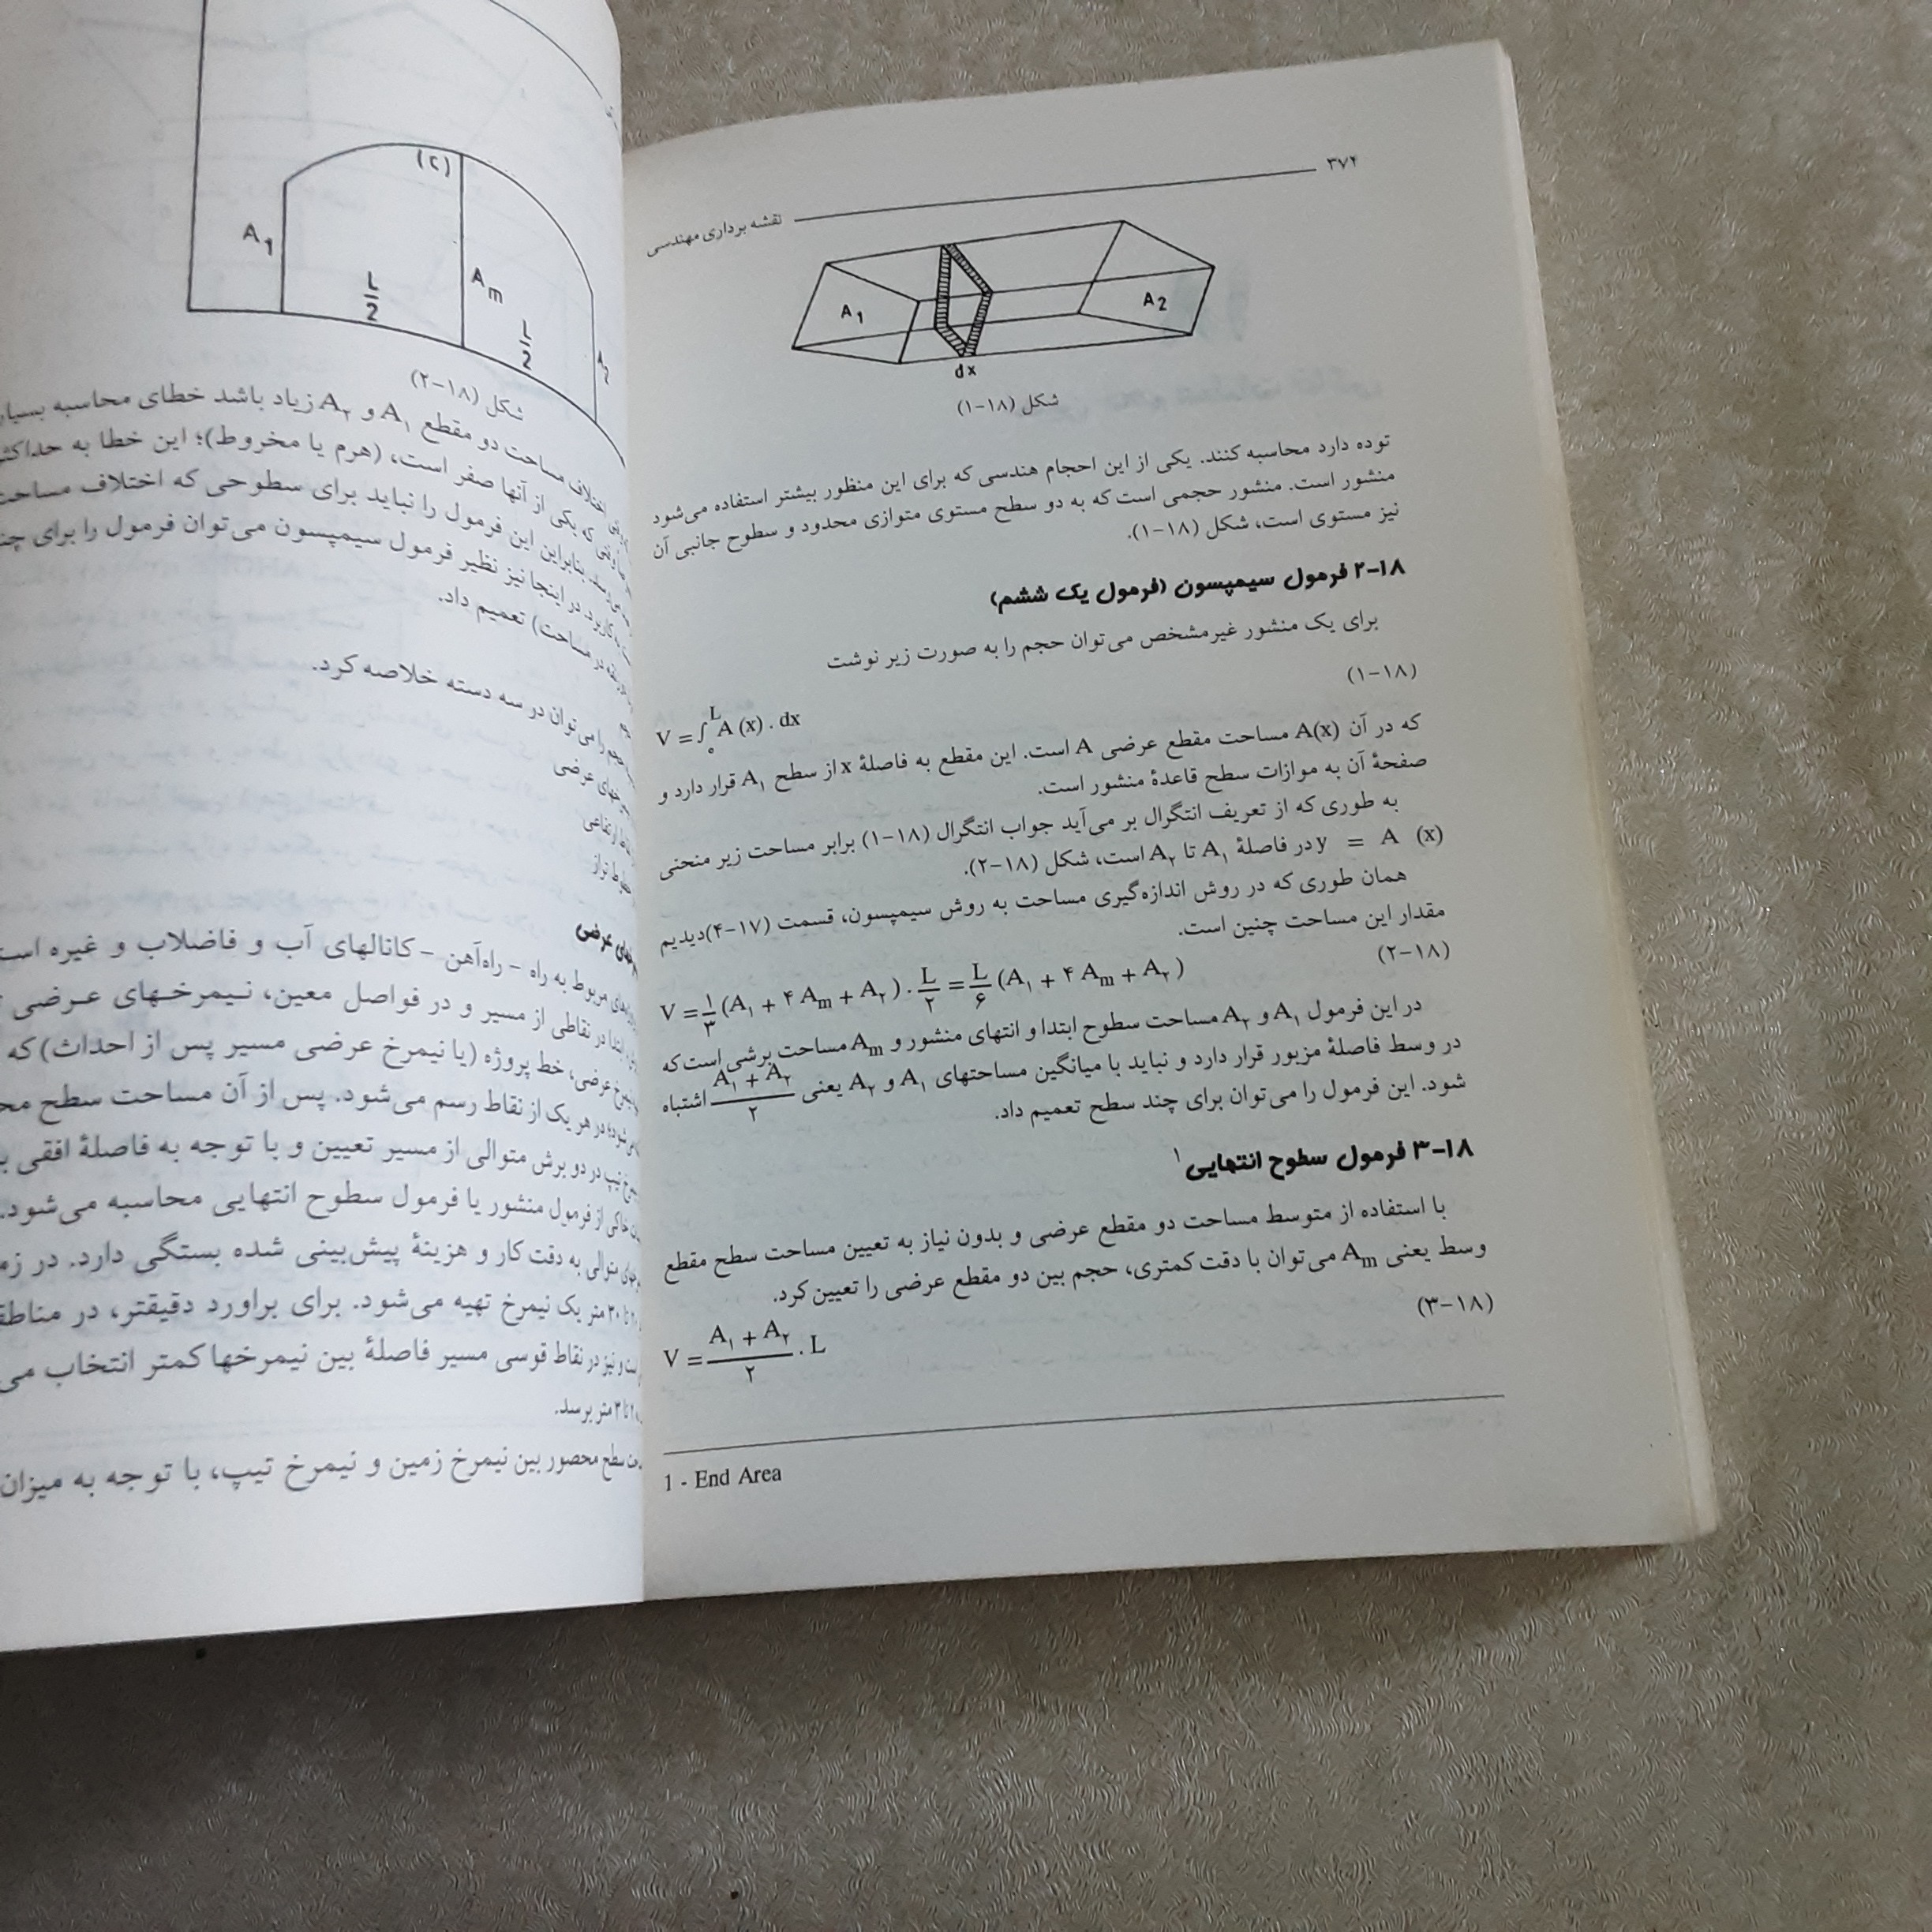 ۳۷۴
نقشه برداری مهندسی
A1
A2
dx
شکل (۱۸-۱)
توده دارد محاسبه کنند. یکی از این احجام هندسی که برای این منظور بیشتر استفاده می‌شود
منشور است. منشور حجمی است که به دو سطح مستوی متوازی محدود و سطوح جانبی آن
نیز مستوی است، شکل (۱۸-۱).
۱۸-۲ فرمول سیمپسون (فرمول یک ششم)
برای یک منشور غیرمشخص می‌توان حجم را به صورت زیر نوشت
(۱۸-۱)
V = ∫₀ᴸ A (x) . dx
که در آن A(x) مساحت مقطع عرضی A است. این مقطع به فاصلهٔ x از سطح A۱ قرار دارد و
صفحهٔ آن به موازات سطح قاعدهٔ منشور است.
به طوری که از تعریف انتگرال بر می‌آید جواب انتگرال (۱۸-۱) برابر مساحت زیر منحنی
y = A (x) در فاصلهٔ A۱ تا A۲ است، شکل (۱۸-۲).
همان طوری که در روش اندازه‌گیری مساحت به روش سیمپسون، قسمت (۱۷-۴) دیدیم
مقدار این مساحت چنین است.
(۱۸-۲)
V = ۱/۳ (A۱ + ۴ Am + A۲) . L/۲ = L/۶ (A۱ + ۴ Am + A۲)
در این فرمول A۱ و A۲ مساحت سطوح ابتدا و انتهای منشور و Am مساحت برشی است که
در وسط فاصلهٔ مزبور قرار دارد و نباید با میانگین مساحتهای A۱ و A۲ یعنی (A۱ + A۲)/۲ اشتباه
شود. این فرمول را می‌توان برای چند سطح تعمیم داد.
۱۸-۳ فرمول سطوح انتهایی۱
با استفاده از متوسط مساحت دو مقطع عرضی و بدون نیاز به تعیین مساحت سطح مقطع
وسط یعنی Am می‌توان با دقت کمتری، حجم بین دو مقطع عرضی را تعیین کرد.
(۱۸-۳)
V = (A۱ + A۲)/۲ . L
1 - End Area
A1
L/2
Am
L/2
شکل (۱۸-۲)
اختلاف مساحت دو مقطع A۱ و A۲ زیاد باشد خطای محاسبه
که یکی از آنها صفر است، (هرم یا مخروط)؛ این خطا به
بنابراین این فرمول را نباید برای سطوحی که اختلاف
در اینجا نیز نظیر فرمول سیمپسون می‌توان فرمول را برای
در مساحت) تعمیم داد.
را می‌توان در سه دسته خلاصه کرد.
عرضی
ارتفاعی
خطوط تراز
عرضی
مربوط به راه - راه‌آهن - کانالهای آب و فاضلاب و غیره
ابتدا در نقاطی از مسیر و در فواصل معین، نیمرخهای عرضی
عرضی، خط پروژه (یا نیمرخ عرضی مسیر پس از احداث) که
در هر یک از نقاط رسم می‌شود. پس از آن مساحت سطح
تیپ در دو برش متوالی از مسیر تعیین و با توجه به فاصلهٔ افقی
خاکی از فرمول منشور یا فرمول سطوح انتهایی محاسبه می‌شود.
متوالی به دقت کار و هزینهٔ پیش‌بینی شده بستگی دارد. در
تا ۳۰ متر یک نیمرخ تهیه می‌شود. برای براورد دقیقتر، در
و نیز در نقاط قوسی مسیر فاصلهٔ بین نیمرخها کمتر انتخاب
متر برسد.
سطح محصور بین نیمرخ زمین و نیمرخ تیپ، با توجه به میزان